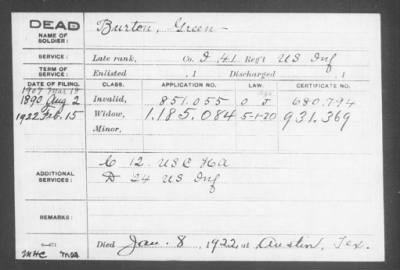 DEAD
NAME OF SOLDIER: Burton, Green
SERVICE: Late rank, Co. D, 41 Reg't US Inf
TERM OF SERVICE: Enlisted , 1 Discharged , 1
DATE OF FILING. CLASS. APPLICATION NO. LAW. CERTIFICATE NO.
1907 Mar 18
1890 Aug 2 Invalid, 851.055 680.794
1922 Feb. 15 Widow, 1.185.084 5-1-20 931.369
Minor,
C 12. US C HA
ADDITIONAL SERVICES: D 24 US Inf
REMARKS:
Died Jan. 8, 1922, at Austin, Tex.
MHC